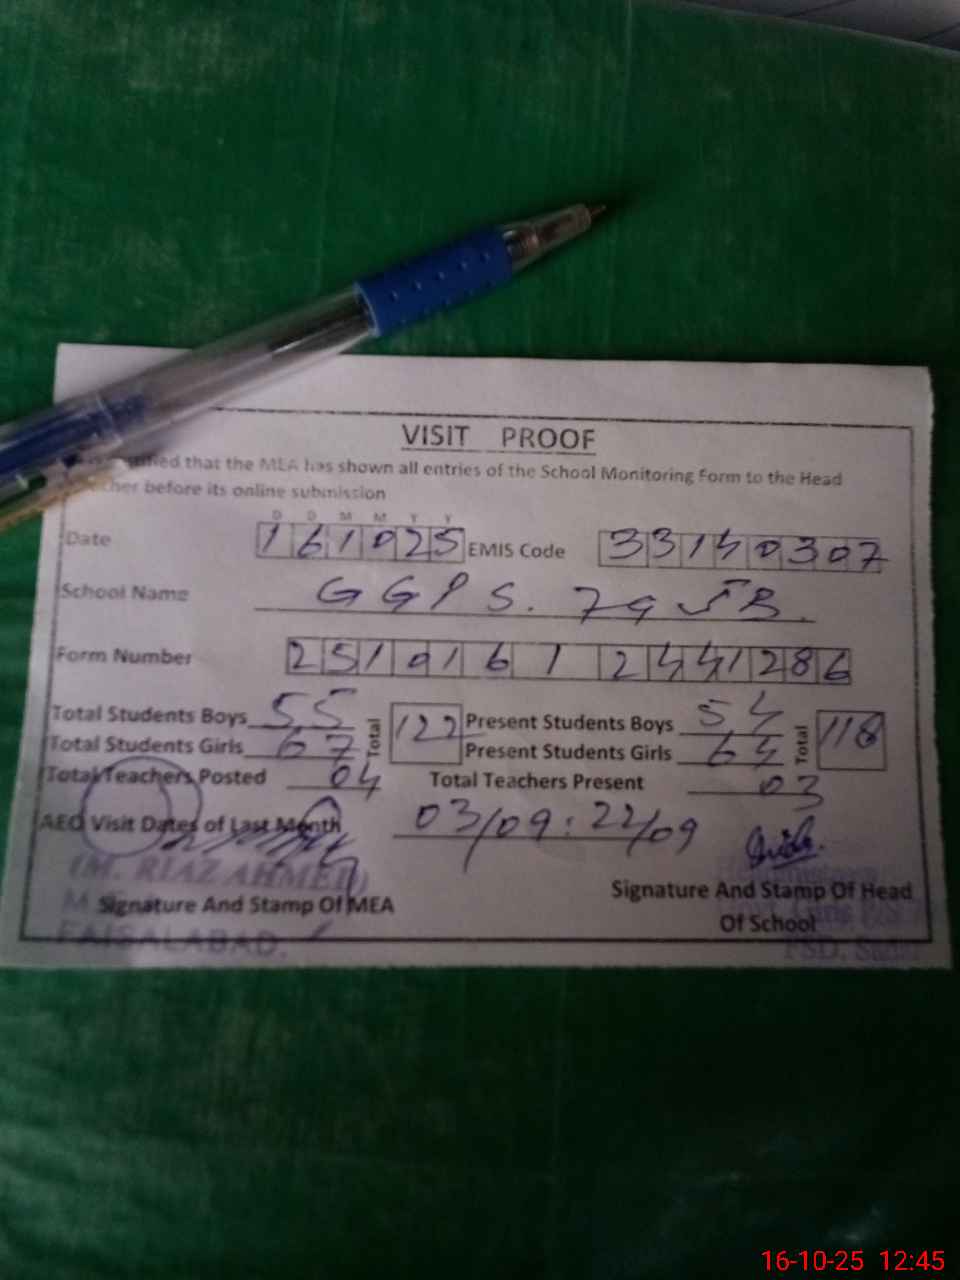 VISIT PROOF
that the MEA has shown all entries of the School Monitoring Form to the Head
before its online submission
D D M M Y Y
Date 161025 EMIS Code 33140307
School Name GGPS. 79 JB.
Form Number 2510161 2441286
Total Students Boys 55 Total 122 Present Students Boys 54 Total 118
Total Students Girls 67 Present Students Girls 64
Total Teachers Posted 04 Total Teachers Present 03
AEO Visit Dates of Last Month 03/09 : 22/09
(M. RIAZ AHMED)
Signature And Stamp Of MEA Signature And Stamp Of Head
Of School
FAISALABAD.
FSD.
16-10-25 12:45